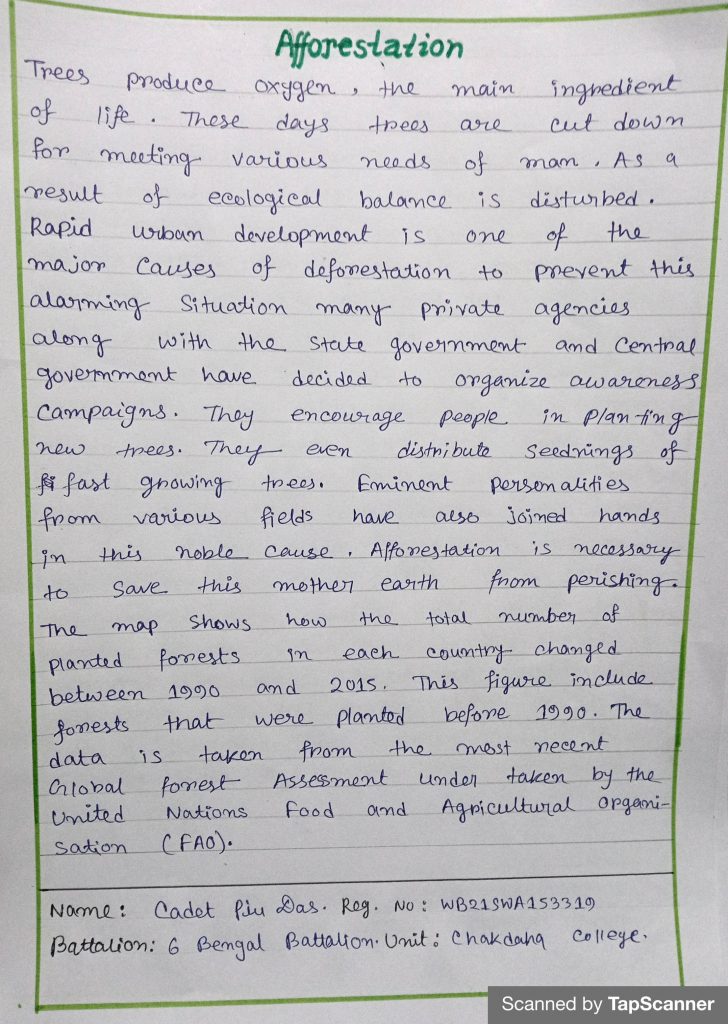 Afforestation
Trees produce oxygen, the main ingredient
of life. These days trees are cut down
for meeting various needs of man. As a
result of ecological balance is disturbed.
Rapid urban development is one of the
major causes of deforestation to prevent this
alarming situation many private agencies
along with the state government and Central
government have decided to organize awareness
campaigns. They encourage people in planting
new trees. They even distribute seednings of
fast growing trees. Eminent personalities
from various fields have also joined hands
in this noble cause. Afforestation is necessary
to save this mother earth from perishing.
The map shows how the total number of
planted forrests in each country changed
between 1990 and 2015. This figure include
forrests that were planted before 1990. The
data is taken from the most recent
Global forrest Assessment under taken by the
United Nations Food and Agricultural organi-
sation (FAO).
Name: Cadet Piu Das. Reg. No: WB21SWA153319
Battalion: 6 Bengal Battalion. Unit: Chakdaha College.
Scanned by TapScanner